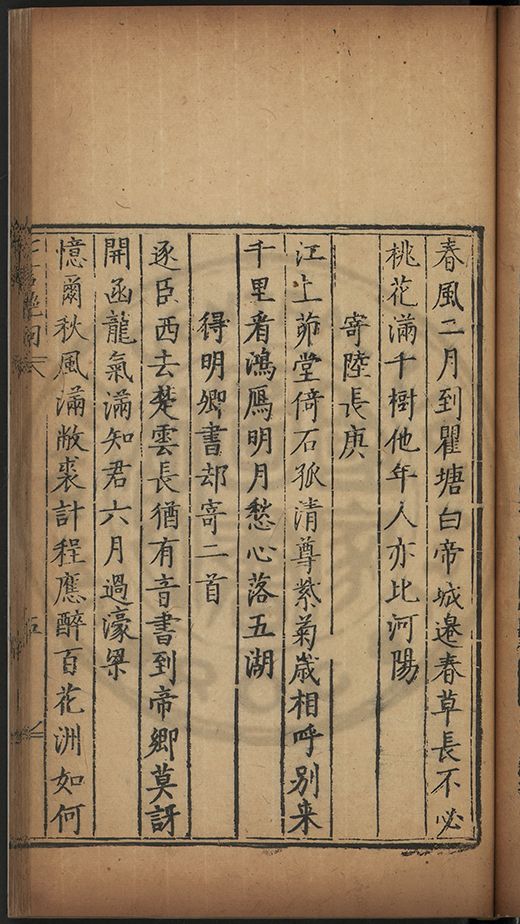 春風二月到瞿塘白帝城邉春草長不必
桃花滿千樹他年人亦比河陽
寄陸長庚
江上茆堂倚石孤清尊紫菊歲相呼別来
千里看鴻鴈明月愁心落五湖
得明卿書却寄二首
逐臣西去楚雲長猶有音書到帝鄉莫訝
開函龍氣滿知君六月過濠梁
憶爾秋風滿敝裘計程應醉百花洲如何